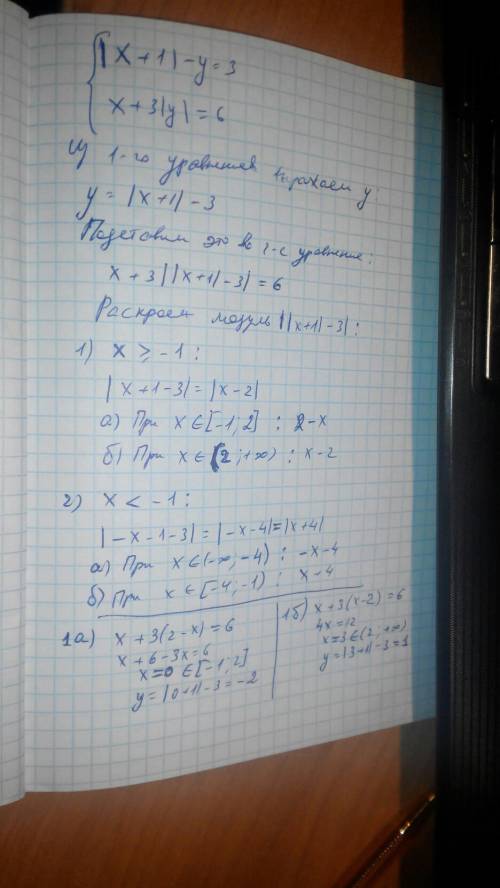 |x+1|-y=3
x+3|y|=6
Из 1-го уравнения выражаем y:
y=|x+1|-3
Подставим это во 2-е уравнение:
x+3||x+1|-3|=6
Раскроем модуль ||x+1|-3|:
1) x≥-1:
|x+1-3|=|x-2|
а) При x∈[-1;2] : 2-x
б) При x∈(2;+∞) : x-2
2) x<-1:
|-x-1-3|=|-x-4|=|x+4|
а) При x∈(-∞,-4) : -x-4
б) При x∈[-4,-1) : x-4
1а) x+3(2-x)=6
x+6-3x=6
x=0∈[-1;2]
y=|0+1|-3=-2
1б) x+3(x-2)=6
4x=12
x=3∈(2;+∞)
y=|3+1|-3=1